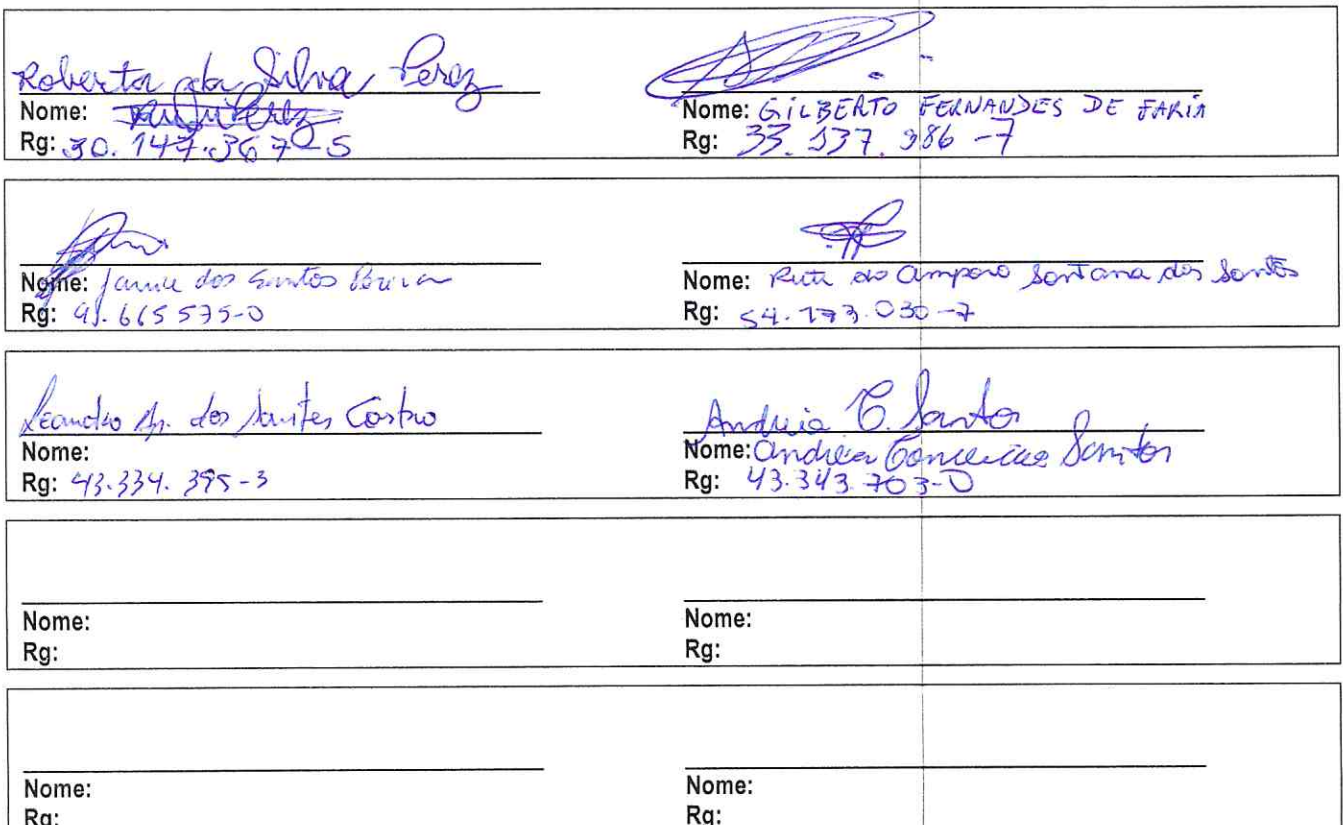 Roberta da Silva Perez
Nome:
Rg: 30.147.367-5
Nome: GILBERTO FERNANDES DE FARIA
Rg: 33.137.986-7
Nome: dos Santos
Rg: 665575-0
Nome: Ruti do Amparo Santana dos Santos
Rg: 54.173.030-7
Leandro Ap. dos Santos Castro
Nome:
Rg: 43.334.395-3
Andreia C. Santos
Nome: Andreia Conceicao Santos
Rg: 43.343.703-0
Nome:
Rg:
Nome:
Rg:
Nome:
Rg:
Nome:
Rg: